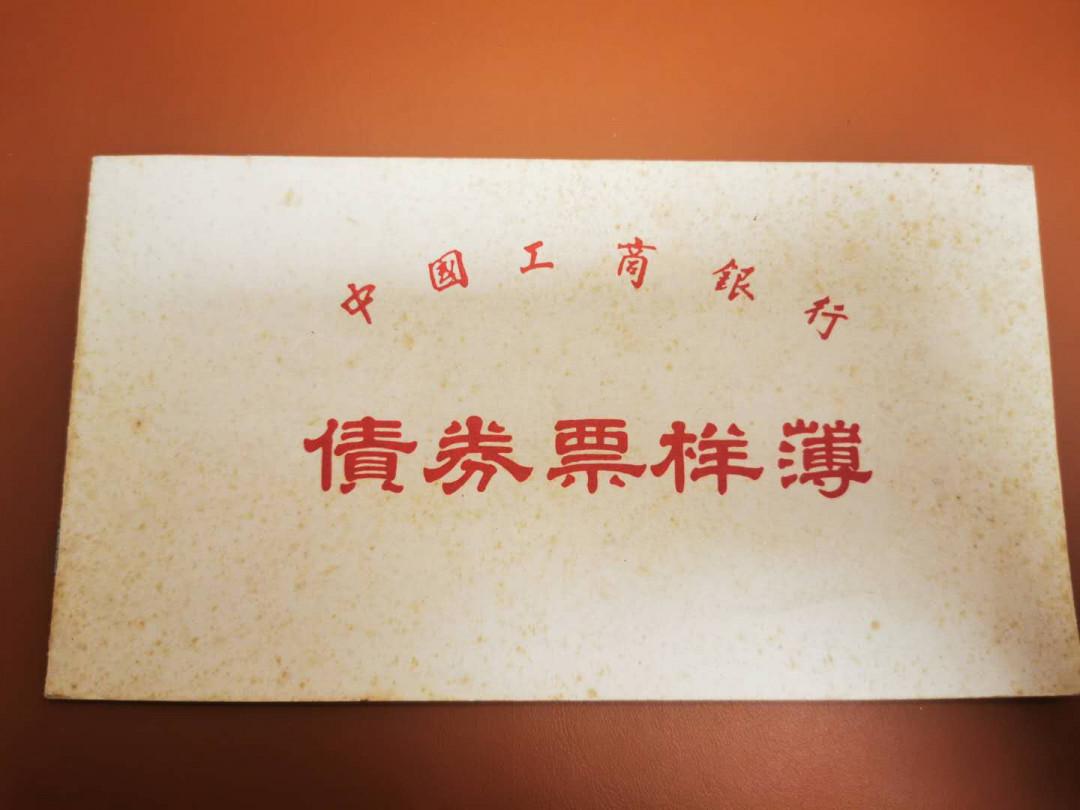 中國工商銀行
債券票样薄